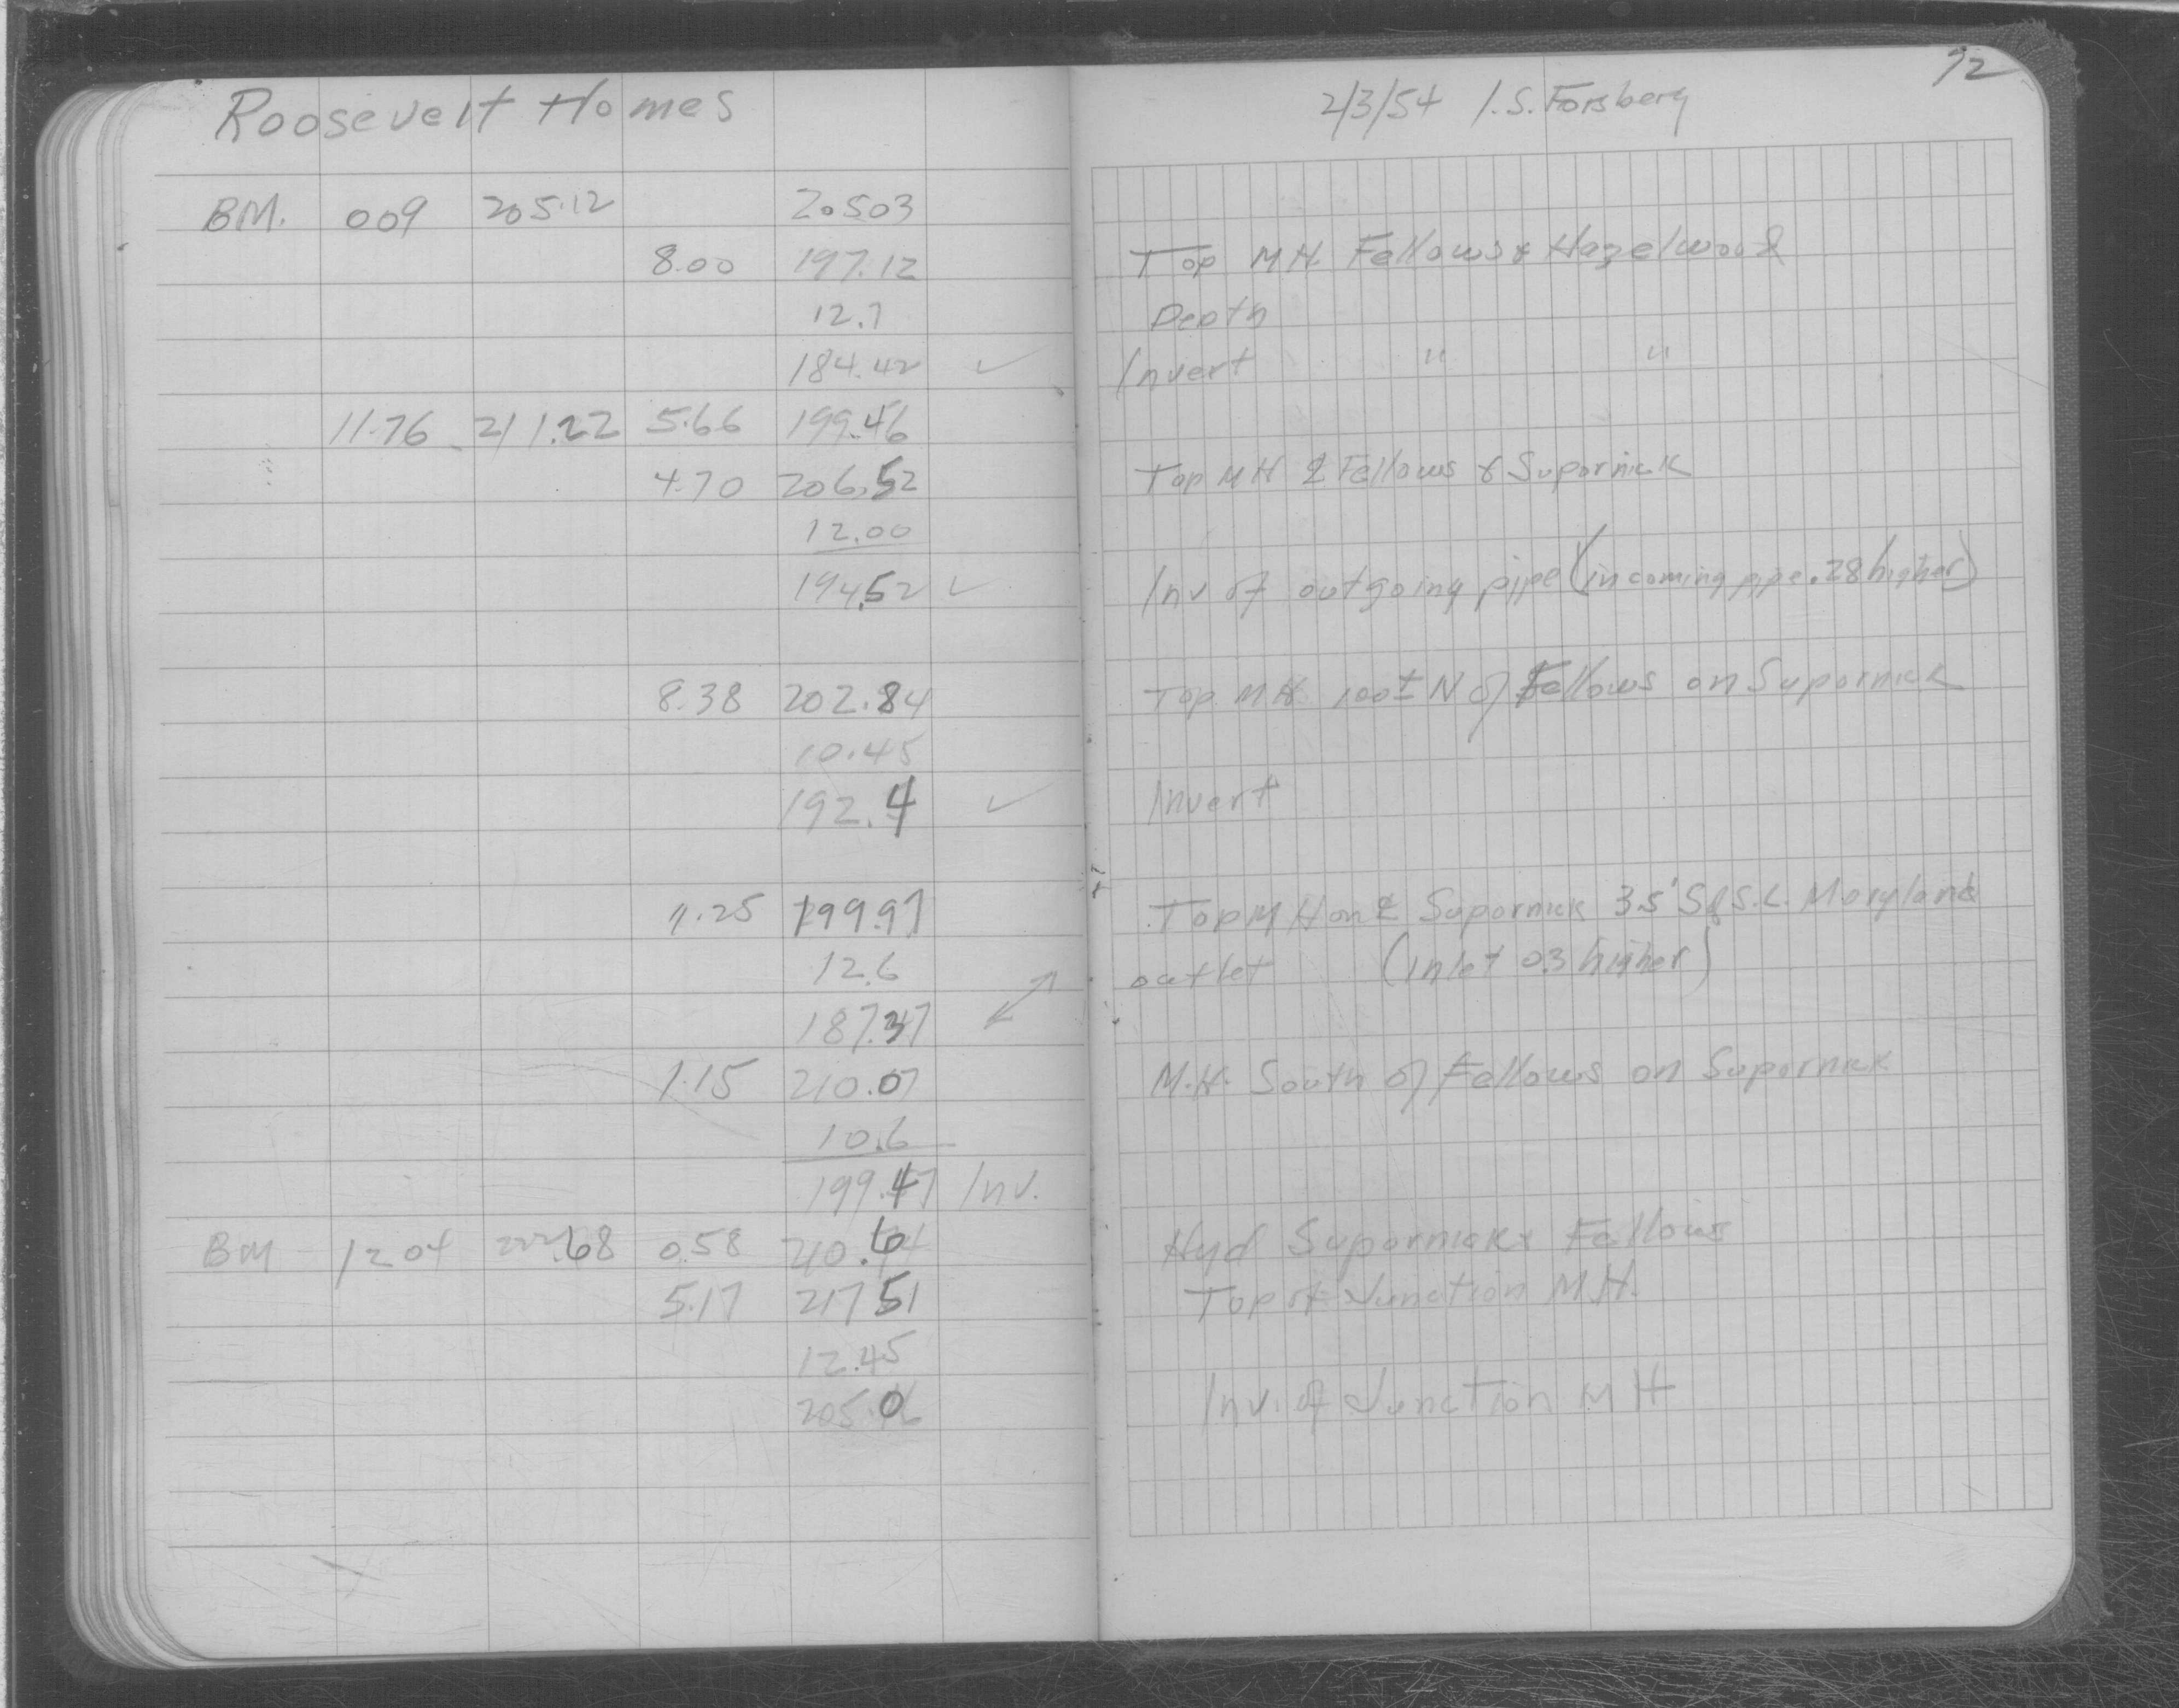 72
Roosevelt Homes
2/3/54 I.S. Forsberg
BM. 009 205.12 20503
8.00 197.12 Top MH. Fellows & Hazelwood
12.7 Depth
184.42 ✓ Invert " "
11.76 211.22 5.66 199.46
4.70 206.52 Top MH ℄ Fellows & Supornick
12.00
194.52 ✓ Inv of outgoing pipe (incoming pipe .28 higher)
8.38 202.84 Top M.H. 100± N of Fellows on Supornick
10.45
192.4 ✓ Invert
11.25 199.97 Top MH on ℄ Supornick 3.5' S of S.L. Maryland
12.6 outlet (Inlet 0.3 higher)
187.37
1.15 210.07 M.H. South of Fellows on Supornick
10.6
199.47 Inv.
BM 12.04 222.68 0.58 210.64 Hyd Supornick & Fellows
5.17 217 51 Top of Junction M.H.
12.45
205.0 Inv. of Junction MH